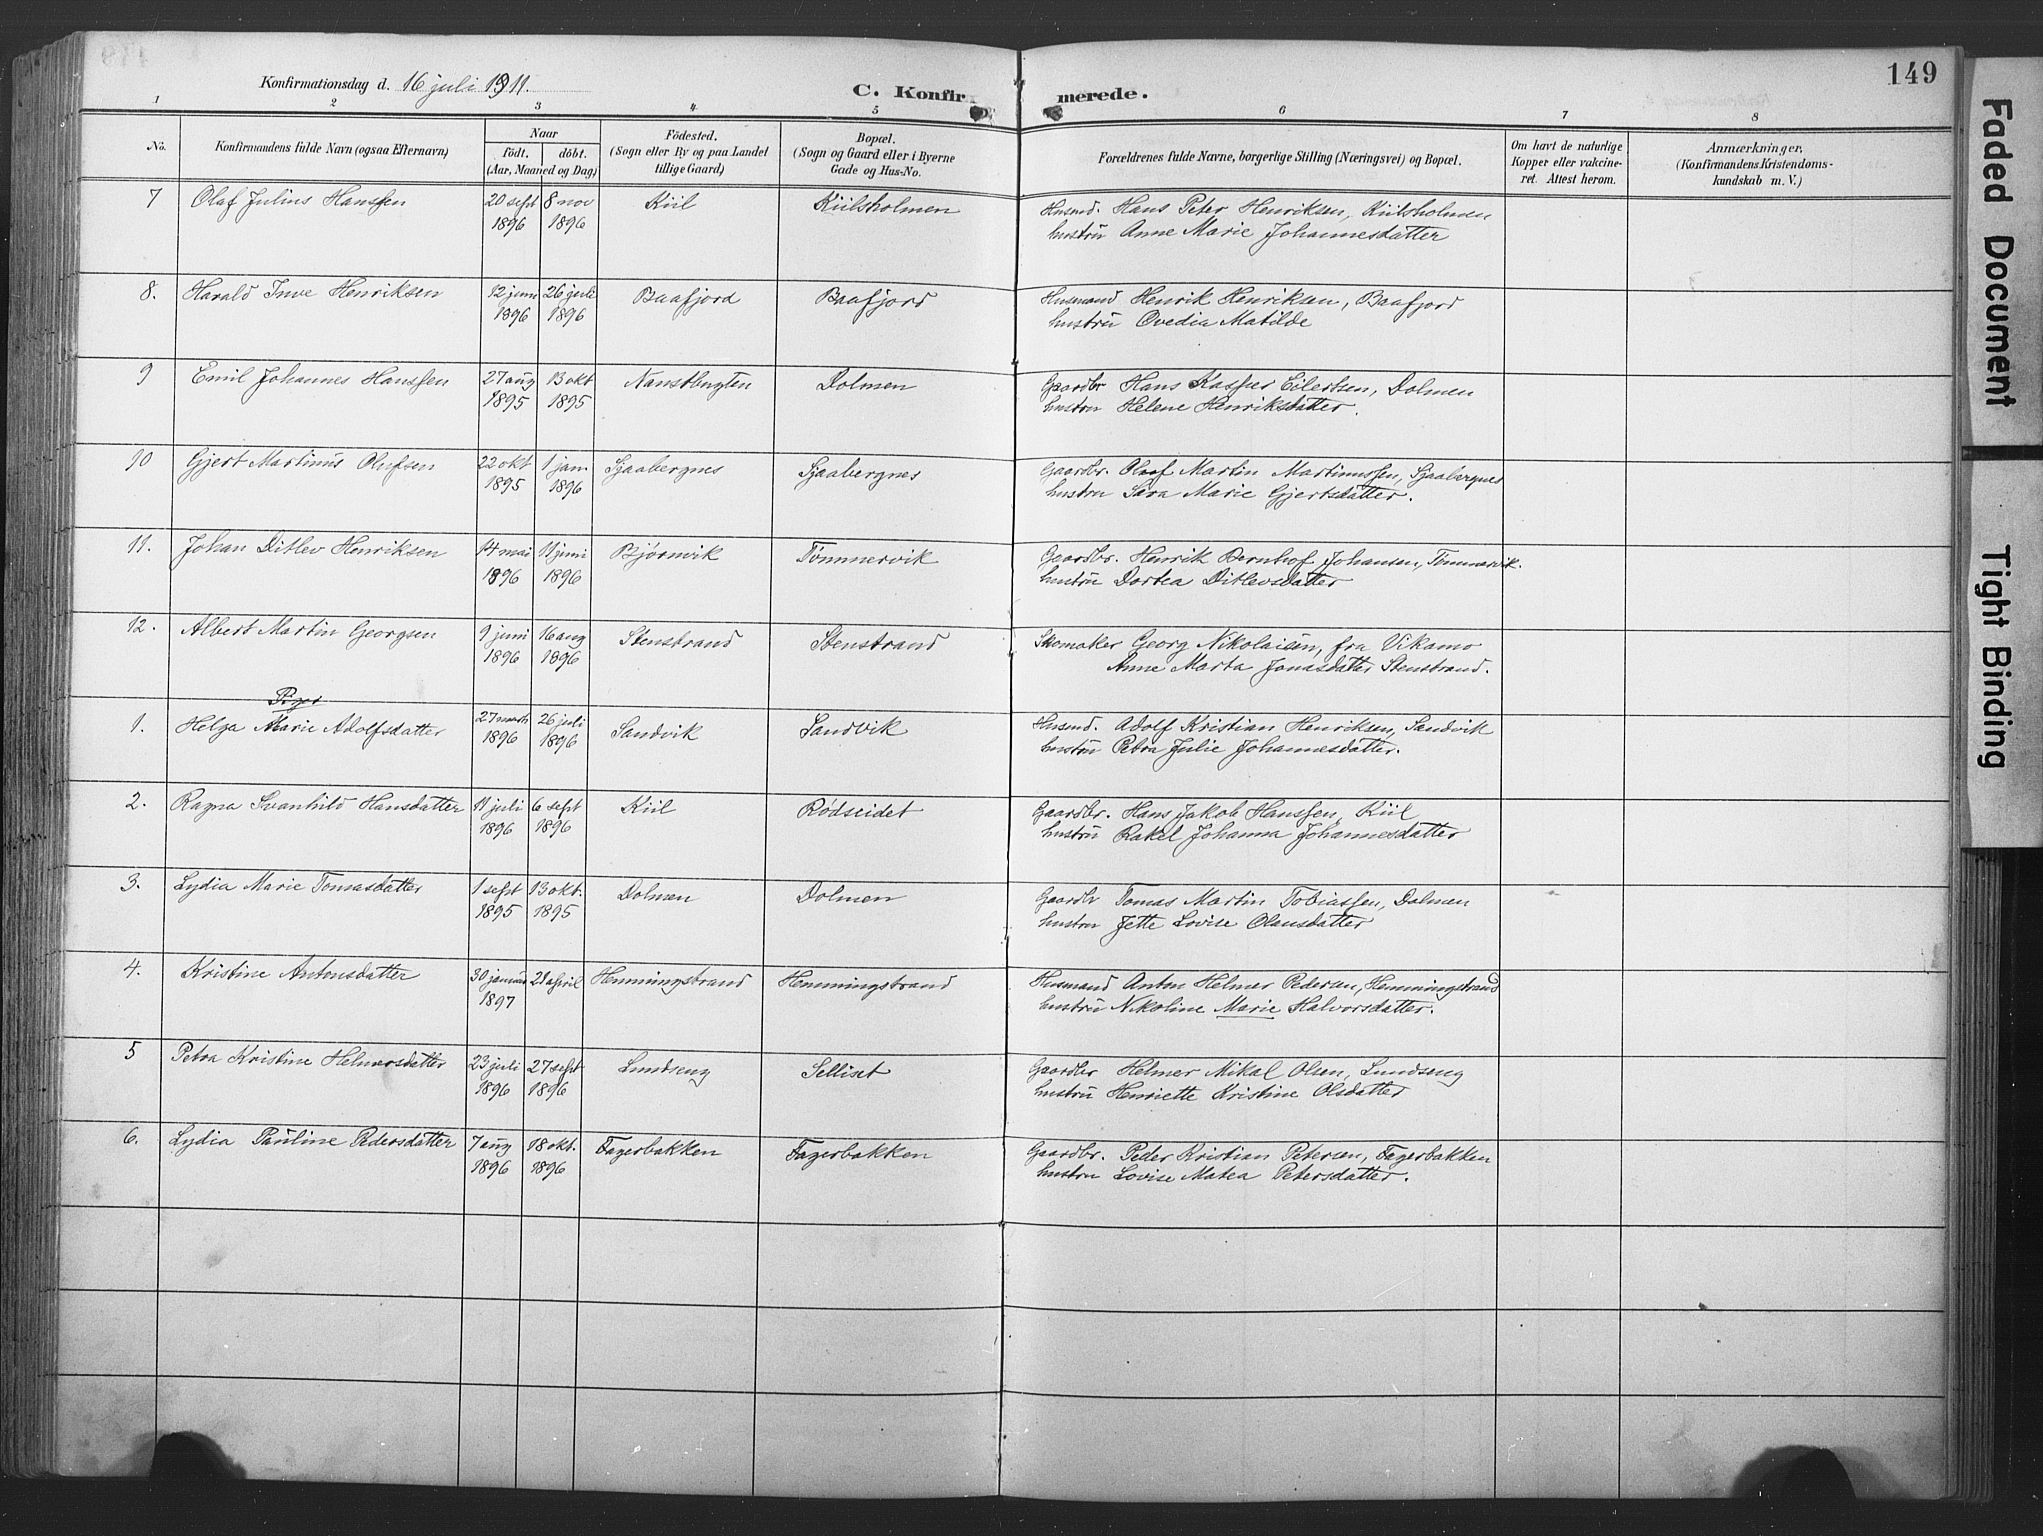 149
Konfirmationsdag d. 16 juli 1911.
C. Konfirmerede.
1 2 3 4 5 6 7 8
No.
Konfirmandens fulde Navn (ogsaa Efternavn)
Naar
födt. döbt.
(Aar, Maaned og Dag)
Födested.
(Sogn eller By og paa Landet
tillige Gaard)
Bopæl.
(Sogn og Gaard eller i Byerne
Gade og Hus-No.
Forældrenes fulde Navne, borgerlige Stilling (Næringsvei) og Bopæl.
Om havt de naturlige
Kopper eller vakcine-
ret. Attest herom.
Anmærkninger,
(Konfirmandens Kristendoms-
kundskab m. V.)
7 Olaf Julius Hanssen 20 sept 8 nov Kiil Kiilsholmen Husmd. Hans Peter Henriksen, Kiilsholmen
1896 1896 hustru Anne Marie Johannesdatter
8. Harald Tnve Henriksen 12 juni 26 juli Baafjord Baafjord Husmand Henrik Henriksen, Baafjord
1896 1896 hustru Ovedia Matilde
9 Emil Johannes Hanssen 27 aug 13 okt Nanstbugten Dolmen Gaardbr Hans Kasper Eilertsen, Dolmen
1895 1895 hustru Helene Henriksdatter.
10 Gjert Martinus Olufsen 22 okt 1 jan. Sjaabergnes Sjaabergnes Gaardbr. Oluf Martin Martinussen, Sjaabergnes
1895 1896 hustru Sara Marie Gjertsdatter.
11. Johan Ditlev Henriksen 14 mai 11 juni Bjørnvik Tømmervik Gaardbr. Henrik Bernhof Johansen, Tømmervik.
1896 1896 hustru Dortea Ditlevsdatter
12. Albert Martin Georgsen 9 juni 16 aug Stenstrand Stenstrand Skomaker Georg Nikolaisen, fra Vikamo
1896 1896 Anne Marta Jonasdatter Stenstrand.
Piger
1. Helga Marie Adolfsdatter 27 marts 26 juli Sandvik Sandvik Husmd. Adolf Kristian Henriksen, Sandvik
1896 1896 hustru Petra Julie Johannesdatter.
2. Ragna Svanhild Hansdatter 11 juli 6 sept Kiil Rødseidet Gaardbr. Hans Jakob Hanssen, Kiil
1896 1896 hustru Rakel Johanna Johannesdatter
3. Lydia Marie Tomasdatter 1 sept 13 okt. Dolmen Dolmen Gaardbr Tomas Martin Tobiassen, Dolmen
1895 1895 hustru Jette Lovise Olausdatter
4. Kristine Antonsdatter 30 januar 21 april Hemmingstrand Hemmingstrand Husmand Anton Helmer Pedersen, Hemmingstrand
1897 hustru Nikoline Marie Halvorsdatter.
5 Petra Kristine Helmersdatter 23 juli 27 sept Lundseng Selliset Gaardbr Helmer Mikal Olsen, Lundseng
1896 1896 hustru Henriette Kristine Olsdatter
6. Lydia Pauline Pedersdatter 7 aug 18 okt. Fagerbakken Fagerbakken Gaardbr. Peder Kristian Petersen, Fagerbakken
1896 1896 hustru Lovise Matea Petersdatter.
Faded Document
Tight Binding